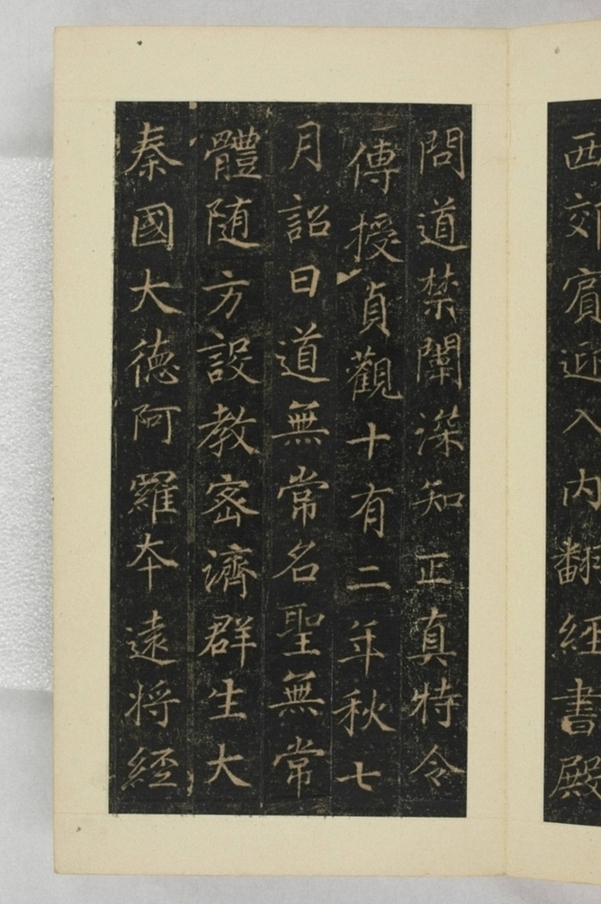 西郊賔迎入内翻経書殿
問道禁闈深知正真特令
傳授貞觀十有二年秋七
月詔曰道無常名聖無常
體随方設教密濟群生大
秦國大德阿羅夲遠将經